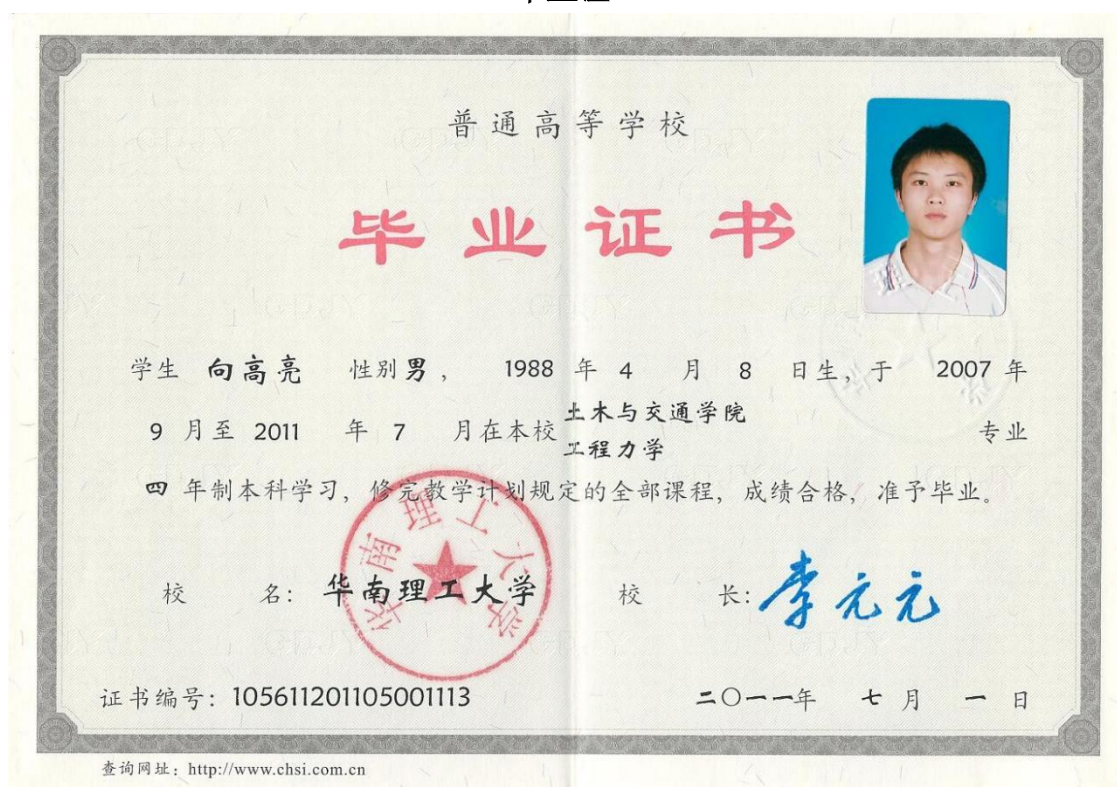 普通高等学校
毕业证书
学生 向高亮 性别 男， 1988 年 4 月 8 日生，于 2007 年
9 月至 2011 年 7 月在本校 土木与交通学院 工程力学 专业
四 年制本科学习，修完教学计划规定的全部课程，成绩合格，准予毕业。
华南理工大学
校 名：华南理工大学 校 长：李元元
证书编号：105611201105001113 二〇一一年 七 月 一 日
查询网址：http://www.chsi.com.cn